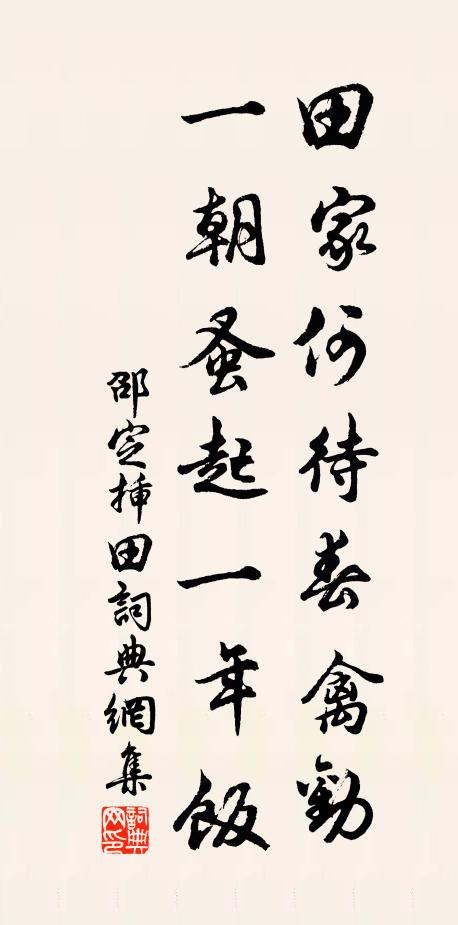 田家何待春禽勸
一朝蚤起一年飯
邵定插田詞典網集
詞典網印